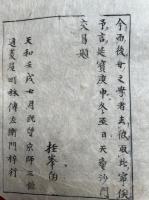 今而後世之學者去彼取此寧俟
予言延寶庚申冬至日天龍沙門
文昌題
桂岑
天和壬戌七月既望京師三條
通菱屋町林傳左衛門梓行